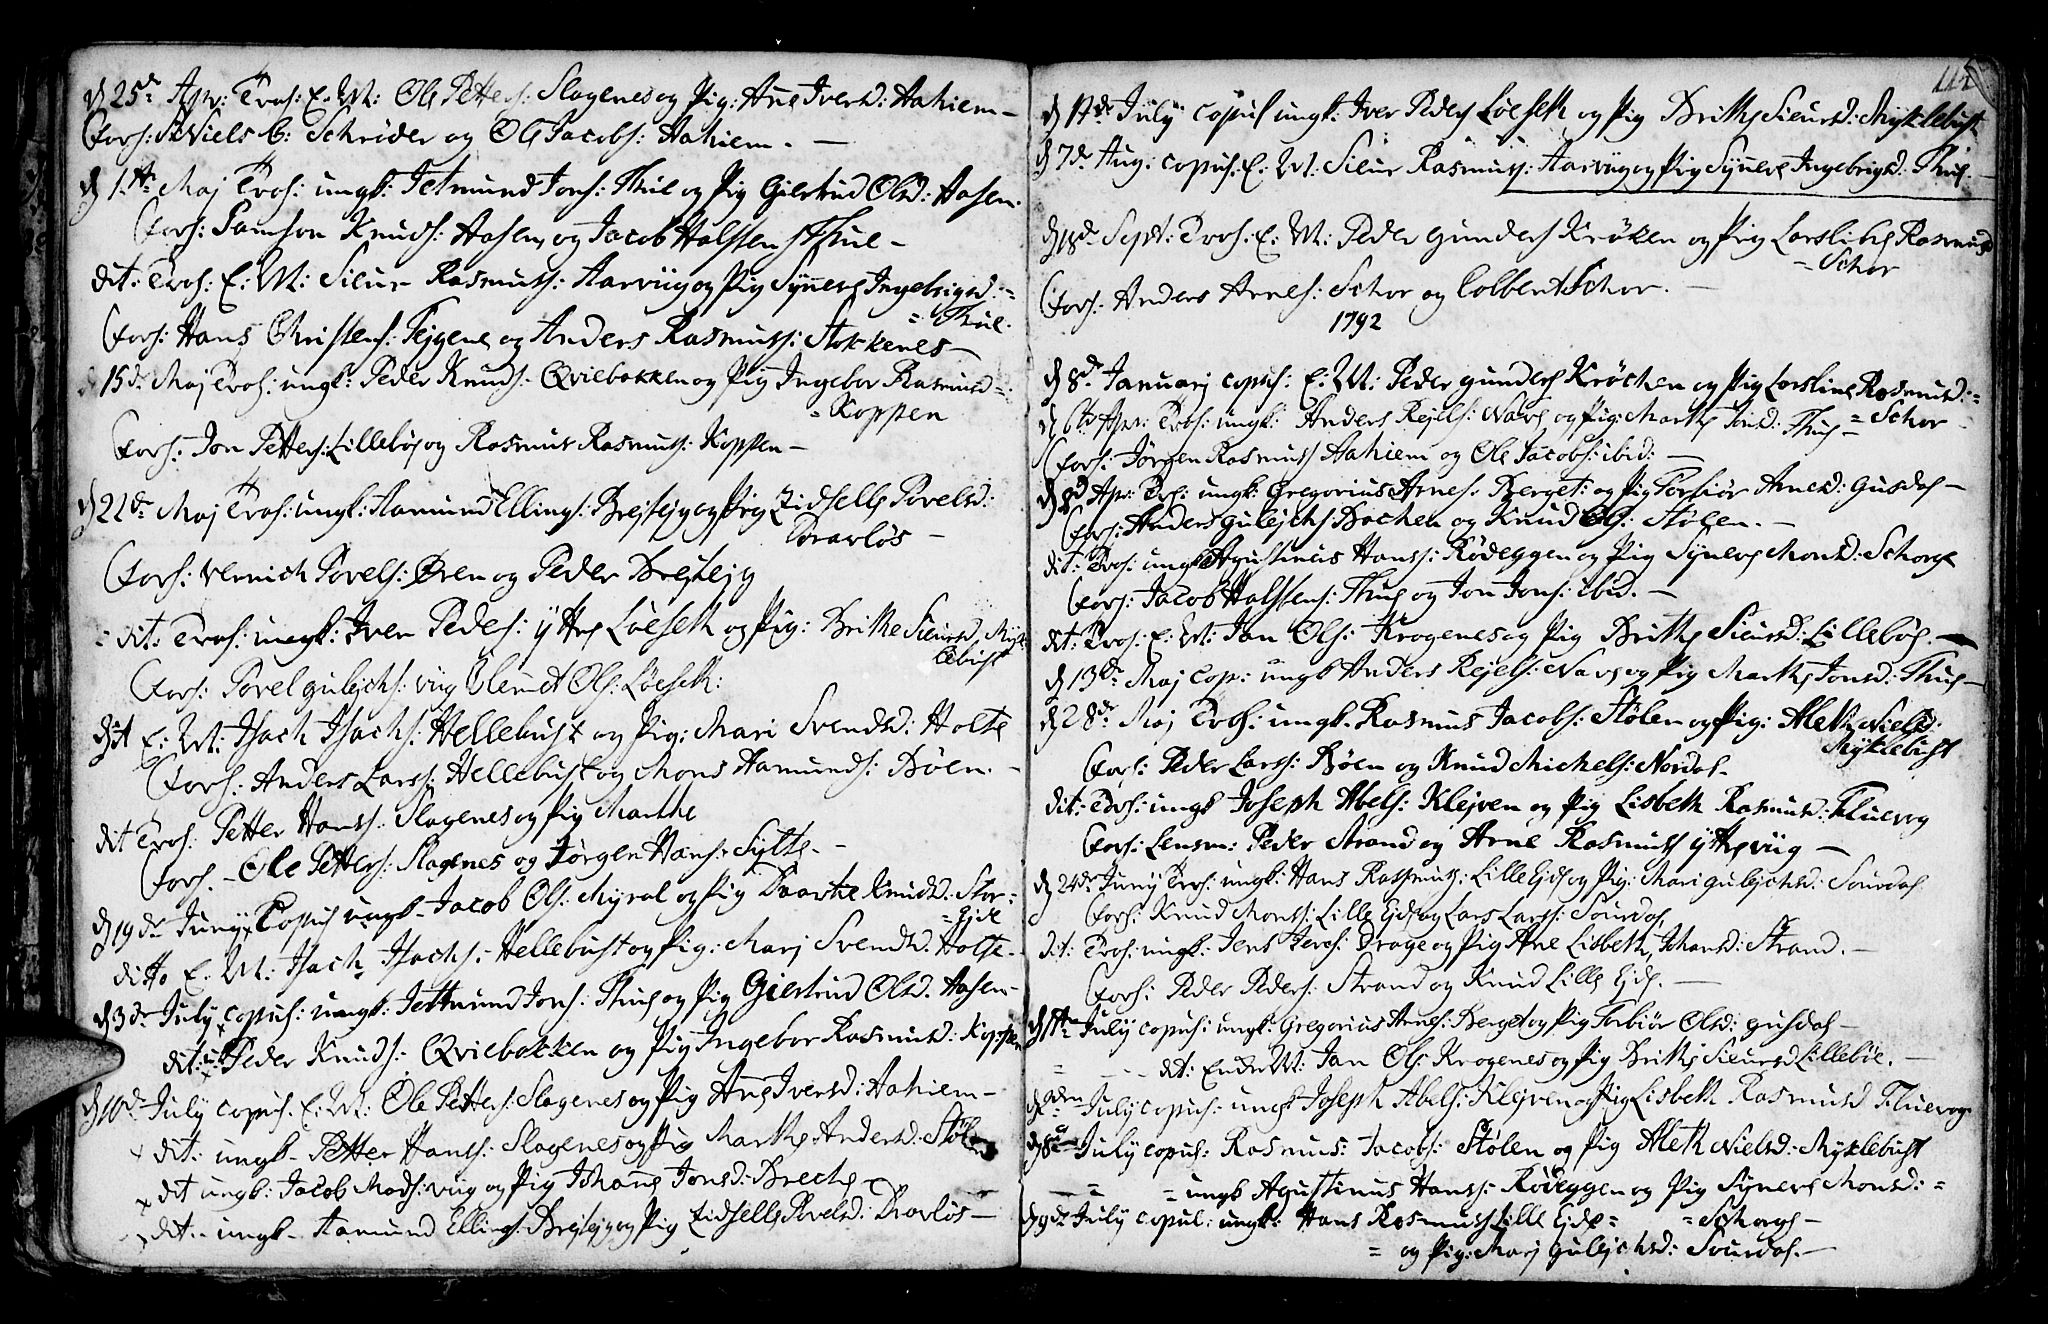 d 25de Apr: Trol: E: M: Ole Petters: Slagenes og Pig: Ane Iversd: Aahiem -
Forl: Niels C: Schrøder og Ole Jacobs: Aahiem. -
d 1ste Maj Trol: ungk: Jetmund Jons: Thue og Pig Giertrud Olsd: Aasen.
Forl: Samson Knuds: Aasen, og Jacob Halsten: Thue -
dit: Trol: E: M: Siur Rasmus: Aarviig og Pig Synneve Ingebrigd: =
= Thue.
Forl: Hans Christens: Tejgene og Anders Rasmus: Stokkenes -
d 15de Maj Trol: ungk: Peder Knuds: Qviebakken og Pig Ingebor Rasmusd =
= Koppen
Forl: Jon Petters: Lillebøe og Rasmus Rasmus: Koppen -
d 22de Maj Trol: ungk: Aamund Ellings: Brejtejg og Pig Zidselle Povelsd:
Dravløs -
Forl: Vernich Povels: Øren og Peder Brejtejg
= dit: Trol: ungk: Iver Peders: ytre Løeseth og Pig: Brithe Siursd Myk
lebust
Forl: Povel gulejchs: viig Clemet Ols: Løeseth:
dit E: M: Isach Isachs: Hellebust og Pig: Mari Svendsd: Holte
Forl: Anders Lars: Hellebust og Mons Aamunds: Bøen. -
dit Trol: Petter Hans: Slagenes og Pig Marthe
Forl. - Ole Petters: Slagenes og Jørgen Hans: Sylte. -
d 19de Juny Copul ungk - Jacob Ols: Myrol og Pig Baarte Knudsd: Stor =
= Ejde
ditto E: M: Isach Isachs: - Hellebust og Pig: Marj Svendsd. Holte. -
d 3de July copul: ungk: Jettmund Jons: Thue og Pig Giertrud Olsd. Aasen -
dit: ungk: Peder Knuds: Qviebakken og Pig Ingebor Rasmusd: Koppen
d 10de July copul. E: M: Ole Petters: Slagenes og Pig Ane Iversd: Aahiem -
dit: ungk - Petter Hans: Slagenes og Pig Marthe Andersd: Stølen
x dit ungk: Jacob Mads: viig og Pig Johane Jonsd: Breche -
dit: - ungk - Aamund Ellings: Brejtejg og Pig Zidselle Povelsd: Dravløs -
115
d 17de July copul ungk: Iver Peders Løeseth og Pig Brithe Siursd: Myklebust
d 7de Aug: copul: E: M: Siur Rasmus: Aarviig og Pig Synneve Ingebrigd: Thue. -
d 18de Sept: Trol: E: M: Peder gunders Krøken og Pig Larsline Rasmusd
= Schor
Forl: Anders Arnes: Schor og Colbent Schor. -
1792
d 8de Januarj copul: E: M: Peder gunders Krøchen og Pig Larsline Rasmusd: =
= Schor -
d 6te Apr: Trol: ungk: Anders Rejels: Nave og Pig: Marthe Jonsd: Thue
Forl: Jørgen Rasmus Aahiem og Ole Jacobs: ibid: -
d 8d Apr: Trol: ungk: Gregorius Arnes: Berget: og Pig Torbiør Arnesd: gusdal -
Forl: Anders gulejchs Bachen og Knud Ols: Stølen. -
dit: Trol: ungk Agustinus Hans: Rødeggen og Pig Synneve Monsd: Schorge
Forl: Jacob Halstens: Thue og Jon Jons: ibid. -
dit: Trol: E: M: Jan Ols: Krogenes og Pig Brithe Siursd: Lillebøe. -
d 13de Maj Cop: ungk Anders Rejels: Nave og Pig Marthe Jonsd: Thue -
d 28de Maj Trol: ungk - Rasmus Jacobs: Stølen og Pig: Aleth Nielsd:
Myklebust
Forl: Peder Lars: Bøen og Knud Michels: Nordal -
dit: Trol: ungk Joseph Abels: Klejven og Pig Lisbeth Rasmusd: Fluevog
Forl: Lensm: Peder Strand og Arne Rasmus ytre viig -
d 24de Juny Trol: ungk: Hans Rasmus: Lille Ejde og Pig: Mari gulejchsd: Sourdal.
Forl: Knud Mons: Lille Ejde og Lars Lars: Sourdal,
dit: Trol: ungk: Jens Iers: Drage og Pig Ane Lisbeth Johansd: Strand. -
Forl: Peder Peders: Strand og Knud Lille Ejde. -
d 1ste July copul: ungk: Gregorius Arnes: Berget og Pig Torbiør Olsd: gusdal -
= - - - dit: Enke M: Jan Ols: Krogenes og Pig Brithe Siursd Lillebøe. -
d 2den July copul: ungk Joseph Abels: Klejven og Pig Lisbeth Rasmusd Fluevog
d 8de July copul: Rasmus: Jacobs: Stølen og Pig Aleth Nielsd: Myklebust
- = = ungk Agustinus Hans: Rødeggen og Pig Synneve Monsd: =
= Schorge -
d 9de July copul: ungk: Hans Rasmus Lille Ejde =
= og Pig: Marj gulejchsd: Sourdal. -